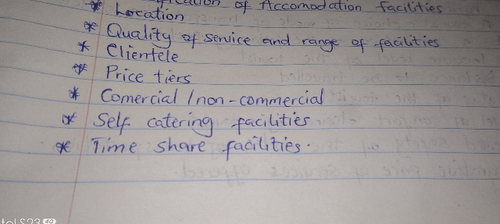 of Accomodation facilities
* Location
* Quality of service and range of facilities
* Clientele
* Price tiers
* Comercial / non-commercial
* Self catering facilities
* Time share facilities.